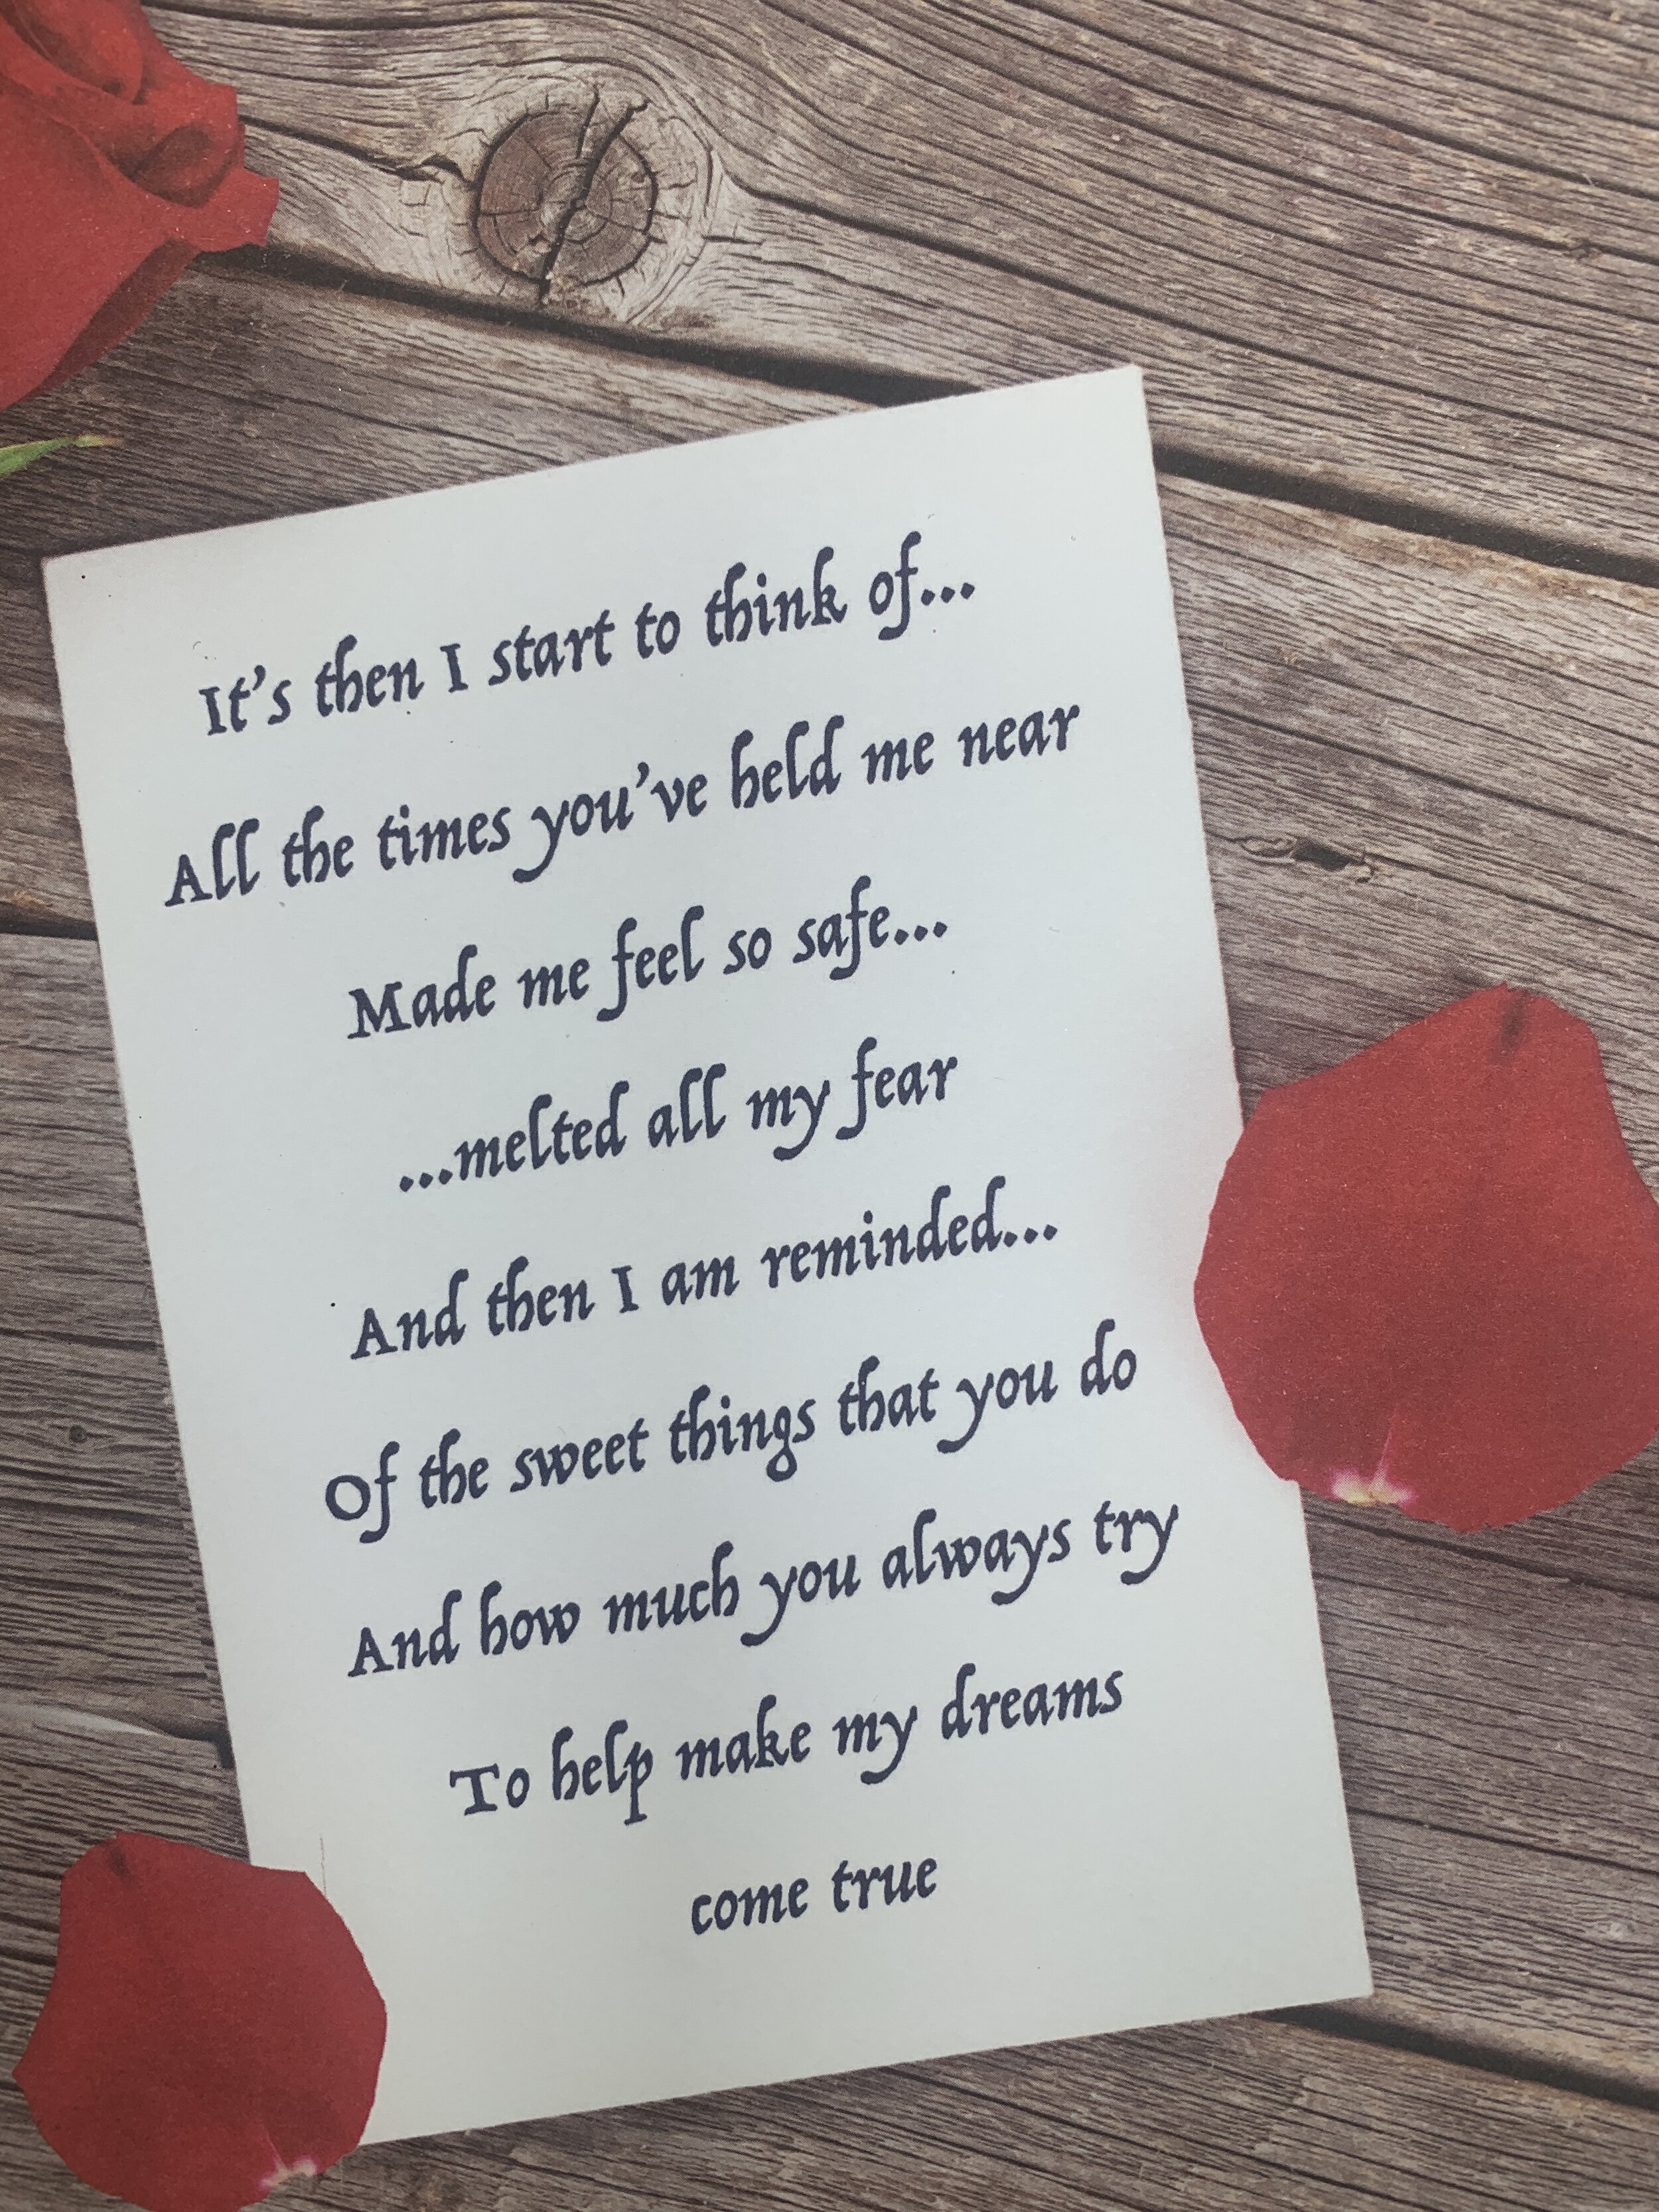 It's then I start to think of...
All the times you've held me near
Made me feel so safe...
...melted all my fear
And then I am reminded...
Of the sweet things that you do
And how much you always try
To help make my dreams
come true